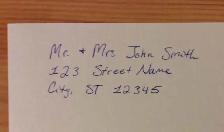 Mr. & Mrs John Smith
123 Street Name
City, ST 12345